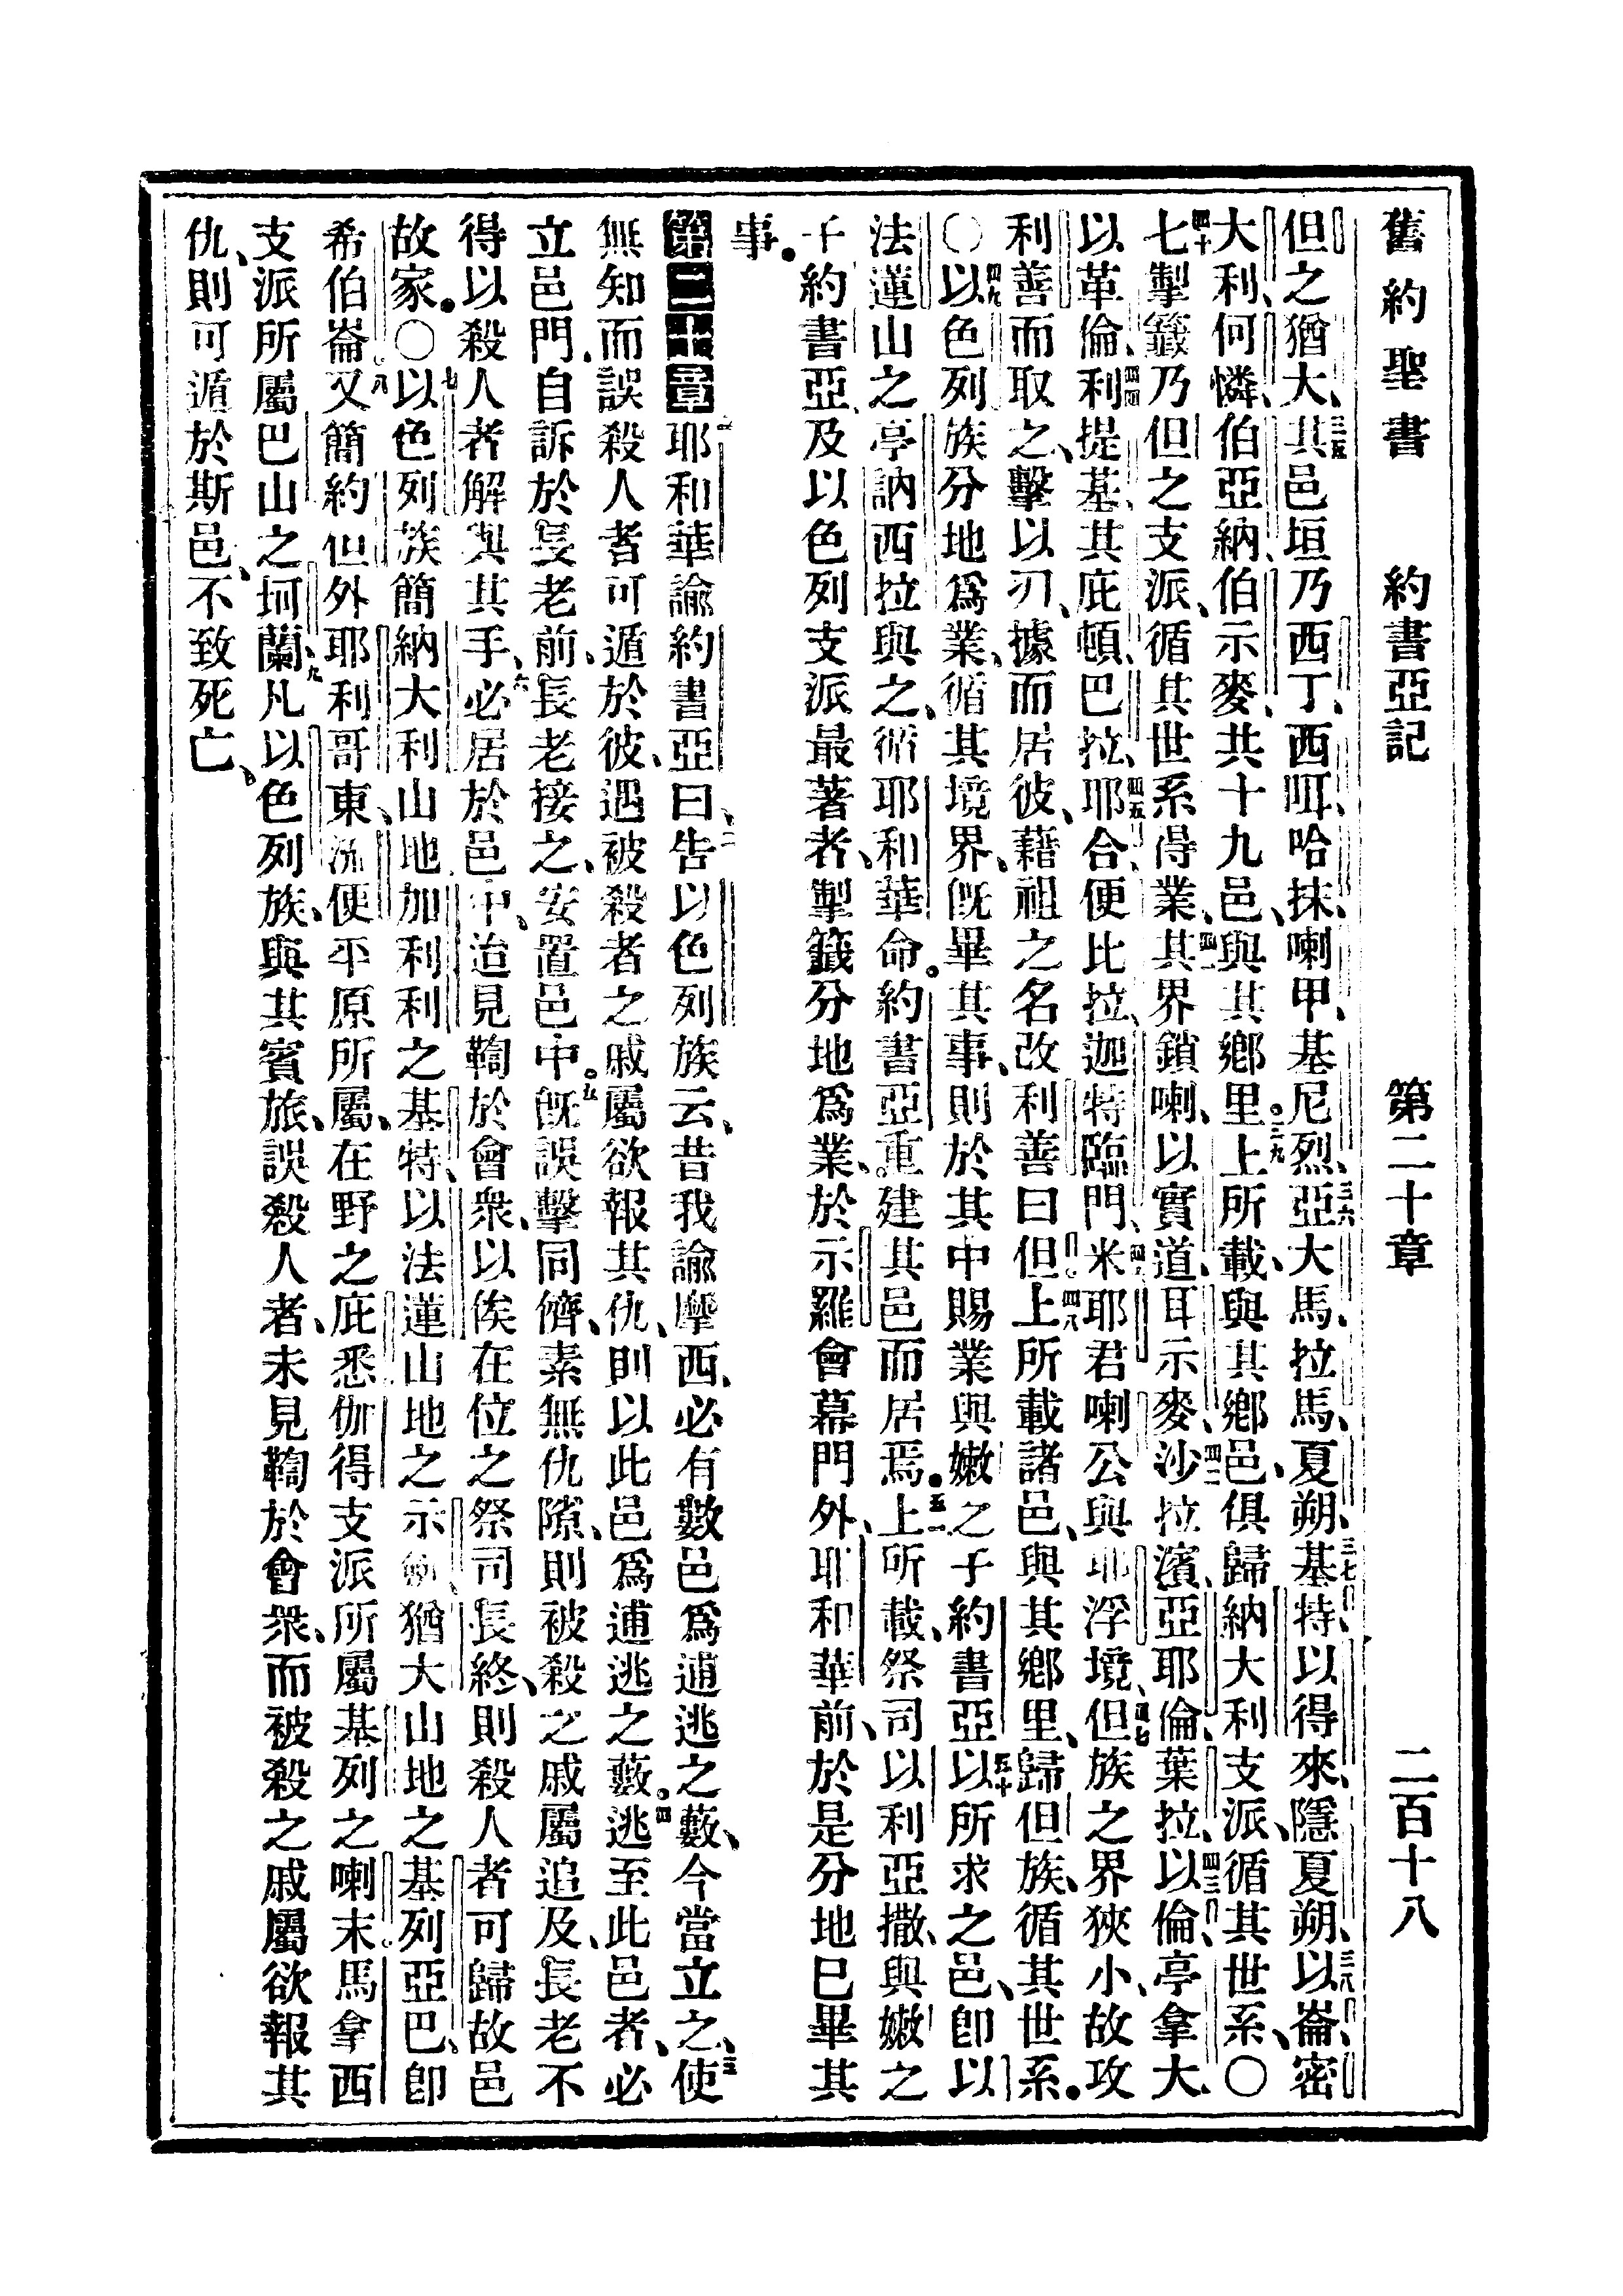 舊約聖書 約書亞記 第二十章 二百十八
但之猶大、三五其邑垣乃西丁、西咡、哈抹、喇甲、基尼烈、三六亞大馬、拉馬、夏朔、三七基特、以得來、隱夏朔、三八以崙、密
大利、何憐、伯亞納、伯示麥、共十九邑、與其鄉里。三九上所載、與其鄉邑、俱歸納大利支派、循其世系、〇
四十七掣籤乃但之支派、循其世系得業、四一其界鎖喇、以實道、耳示麥、四二沙拉濱、亞耶倫、葉拉、四三以倫、亭拿大、
以革倫、四四利提基、其庇頓、巴拉、四五耶合、便比拉、迦特臨門、四六米耶君、喇公、與耶浮境、四七但族之界狹小、故攻
利善而取之、擊以刃、據而居彼、藉祖之名、改利善曰但。四八上所載諸邑、與其鄉里、歸但族、循其世系。
〇四九以色列族分地爲業、循其境界、旣畢其事、則於其中賜業與嫩之子約書亞、五十以所求之邑、卽以
法蓮山之亭訥西拉與之、循耶和華命。約書亞重建其邑而居焉。五一上所載、祭司以利亞撒、與嫩之
子約書亞、及以色列支派最著者、掣籤分地爲業、於示羅會幕門外、耶和華前、於是分地已畢其
事。
第二十章 一耶和華諭約書亞曰、二告以色列族云、昔我諭摩西、必有數邑爲逋逃之藪、今當立之、三使
無知而誤殺人者可遁於彼、遇被殺者之戚屬欲報其仇、則以此邑爲逋逃之藪。四逃至此邑者、必
立邑門、自訴於長老前、長老接之、安置邑中。五旣誤擊同儕、素無仇隙、則被殺之戚屬追及、長老不
得以殺人者解與其手、六必居於邑中、迨見鞫於會衆、以俟在位之祭司長終、則殺人者可歸故邑
故家。〇七以色列族簡納大利山地加利利之基特、以法蓮山地之示劍、猶大山地之基列亞巴、卽
希伯崙。八又簡約但外耶利哥東、流便平原所屬、在野之庇悉、伽得支派所屬基列之喇末、馬拿西
支派所屬巴山之坷蘭、九凡以色列族、與其賓旅、誤殺人者、未見鞫於會衆、而被殺之戚屬欲報其
仇、則可遁於斯邑、不致死亡、